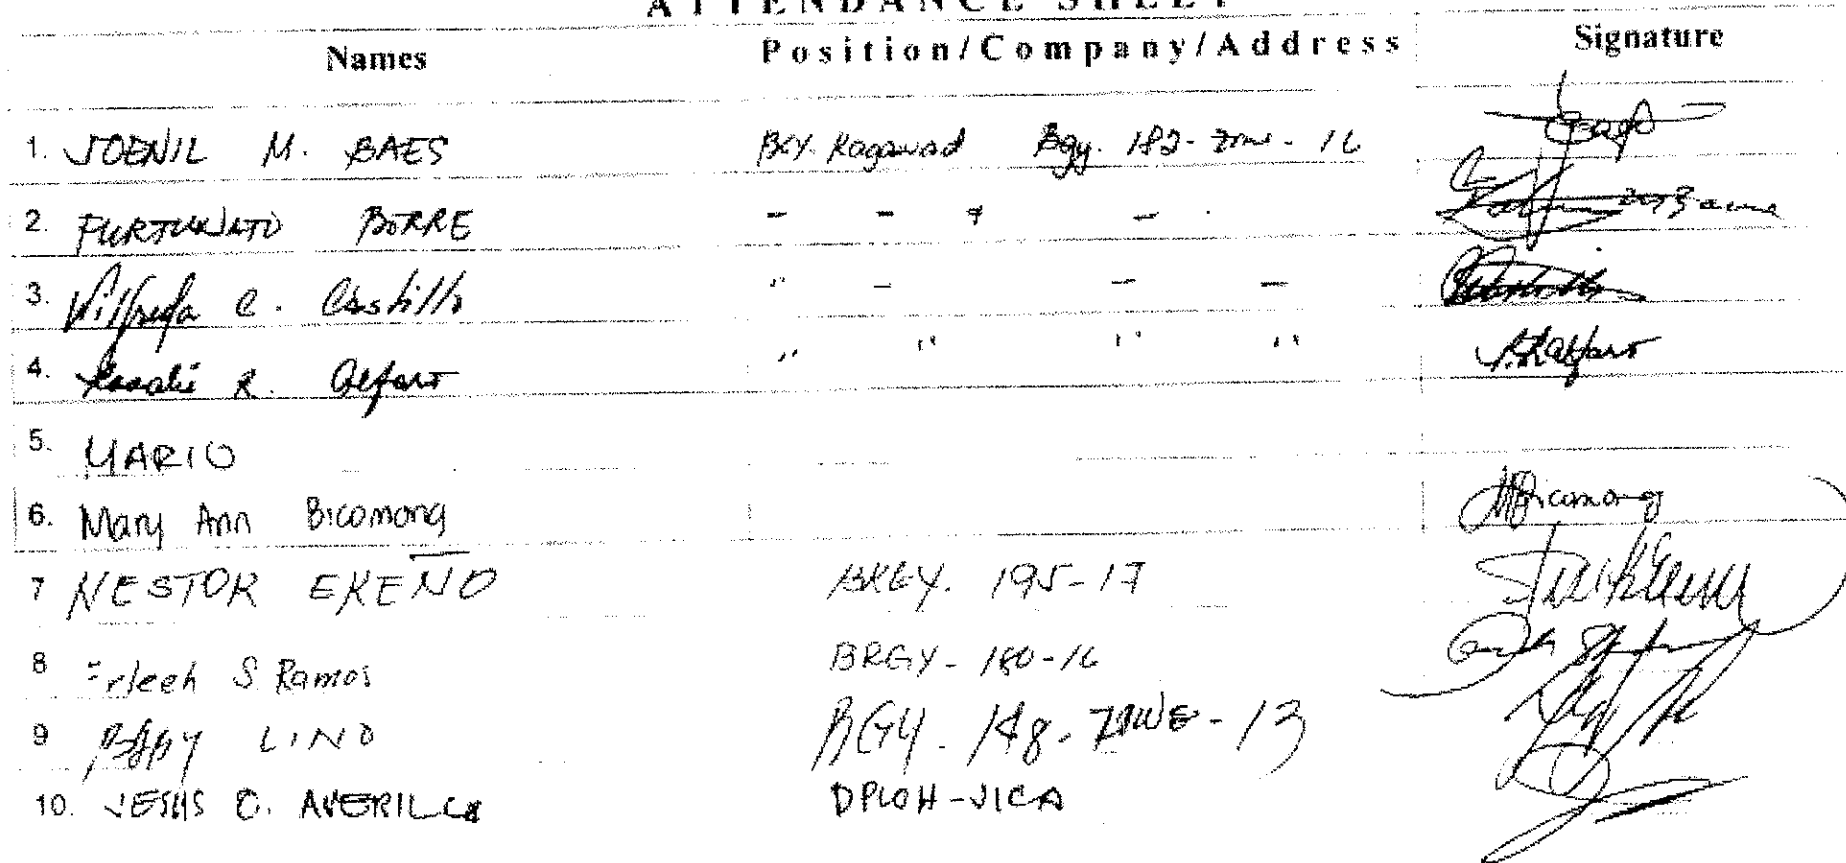 ATTENDANCE SHEET
Names Position/Company/Address Signature
1. JOENIL M. BAES BGY. Kagawad Bgy. 182- Zone - 16
2. FURTUNATO BORRE - - " - .
3. Wilfreda C. Castillo " - - -
4. Rosalie R. Alfaro " " " " R.R. Alfaro
5. MARIO
6. Mary Ann Bicomong MABicomong
7 NESTOR EKEÑO BRGY. 195-17
8 S. Ramos BRGY - 180-16
9 LINO BGY. 148- ZONE - 13
10. JESUS C. AVERILLA DPWH-JICA